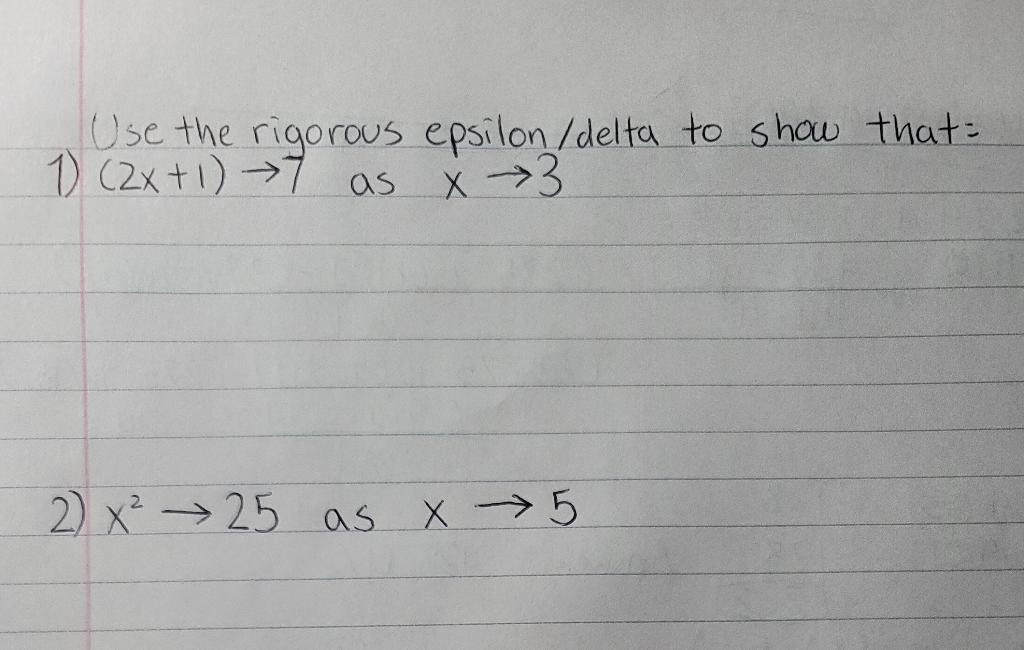 Use the rigorous epsilon/delta to show that:
1) (2x+1) → 7 as x → 3
2) x² → 25 as x → 5